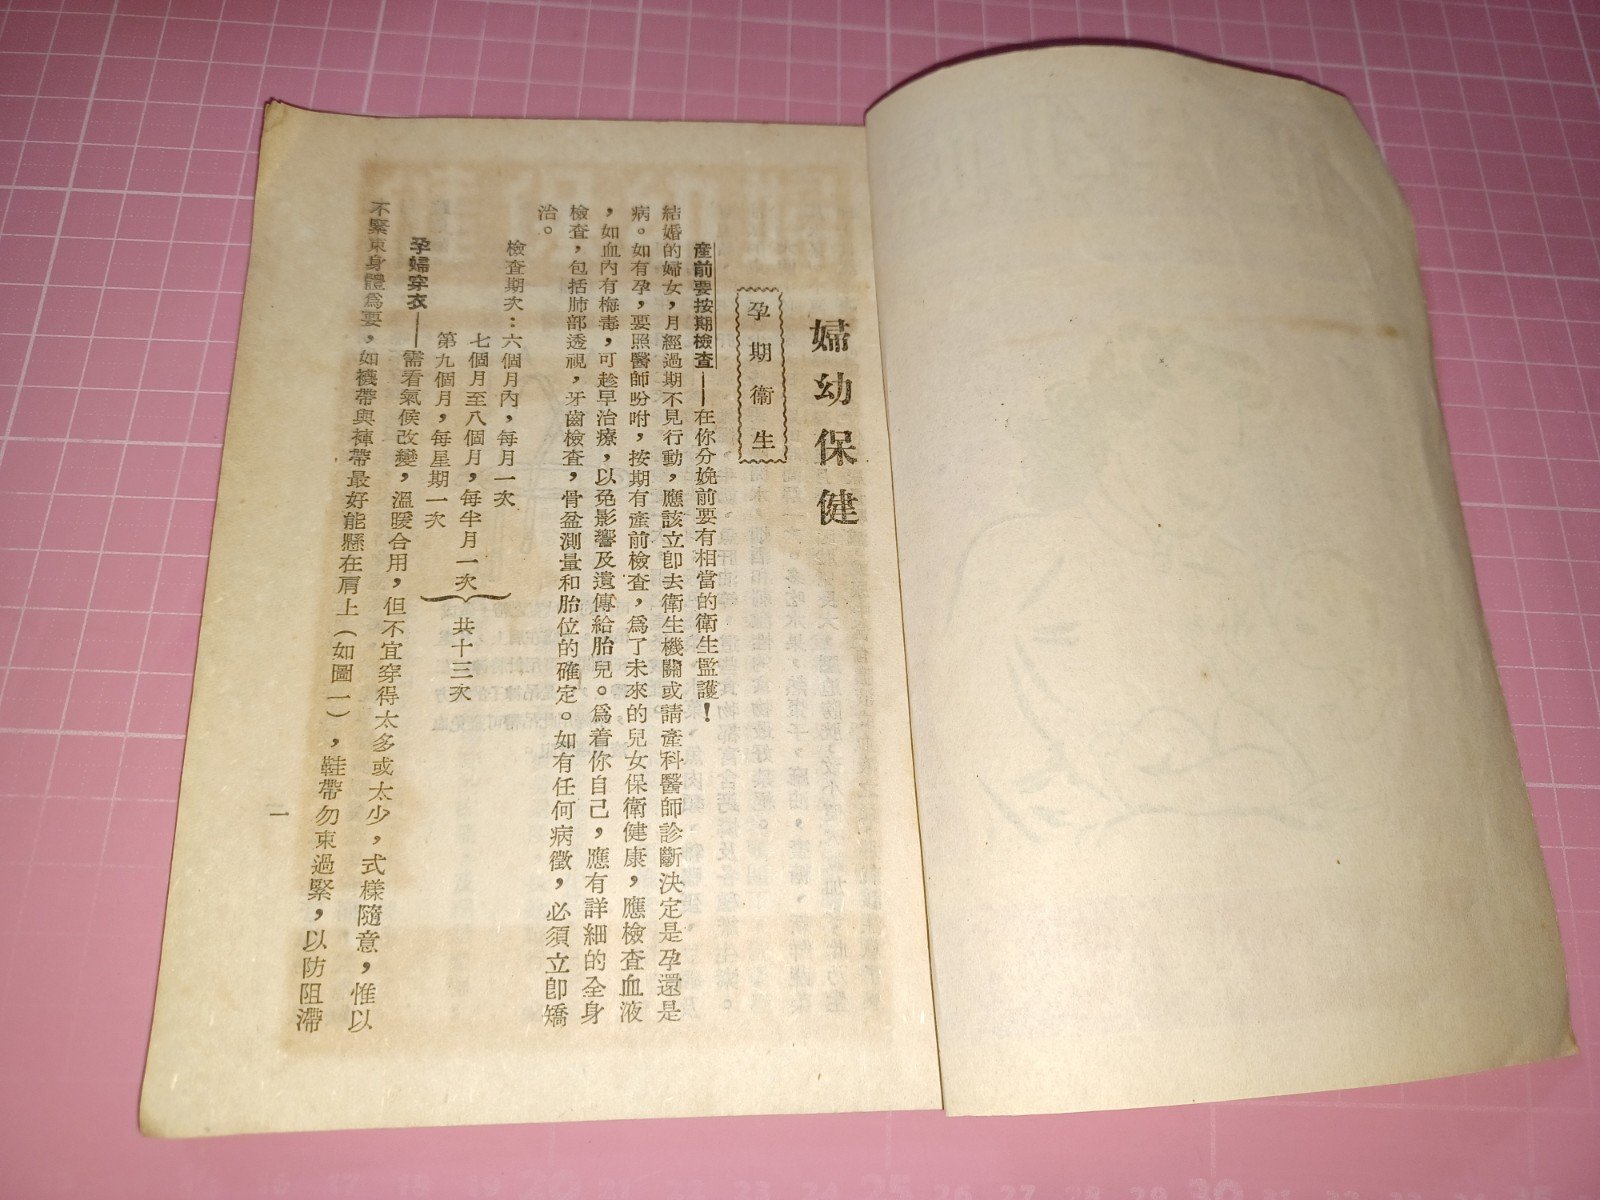 婦幼保健
孕期衞生
產前要按期檢查——在你分娩前要有相當的衞生監護！
結婚的婦女，月經過期不見行動，應該立卽去衞生機關或請產科醫師診斷決定是孕還是
病。如有孕，要照醫師吩咐，按期有產前檢查，爲了未來的兒女保衞健康，應檢查血液
，如血內有梅毒，可趁早治療，以免影響及遺傳給胎兒。爲着你自己，應有詳細的全身
檢查，包括肺部透視，牙齒檢查，骨盆測量和胎位的確定。如有任何病徵，必須立卽矯
治。
檢查期次：六個月內，每月一次
七個月至八個月，每半月一次
第九個月，每星期一次
共十三次
孕婦穿衣——需看氣候改變，溫暖合用，但不宜穿得太多或太少，式樣隨意，惟以
不緊束身體爲要，如襪帶與褲帶最好能懸在肩上（如圖一），鞋帶勿束過緊，以防阻滯
一